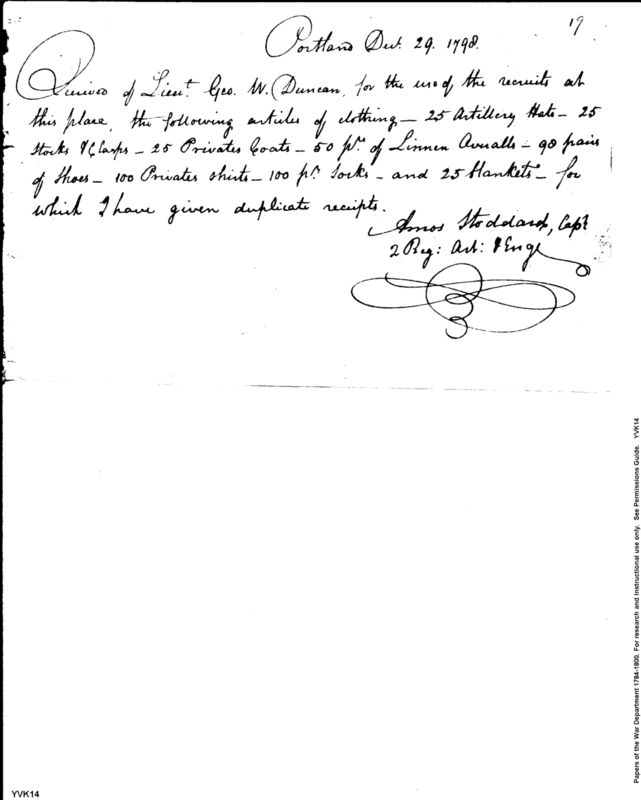 19
Portland Dec. 29. 1798.
Received of Lieut. Geo. W. Duncan, for the use of the recruits at
this place, the following articles of clothing — 25 Artillery Hats — 25
Stocks & Clasps — 25 Privates Coats — 50 pr. of Linnen Overalls — 90 pairs
of Shoes — 100 Privates shirts — 100 pr. Socks — and 25 Blankets — for
which I have given duplicate receipts.
Amos Stoddard, Capt
2 Reg: Art: & Eng
Papers of the War Department 1784-1800. For research and instructional use only. See Permissions Guide. YVK14
YVK14